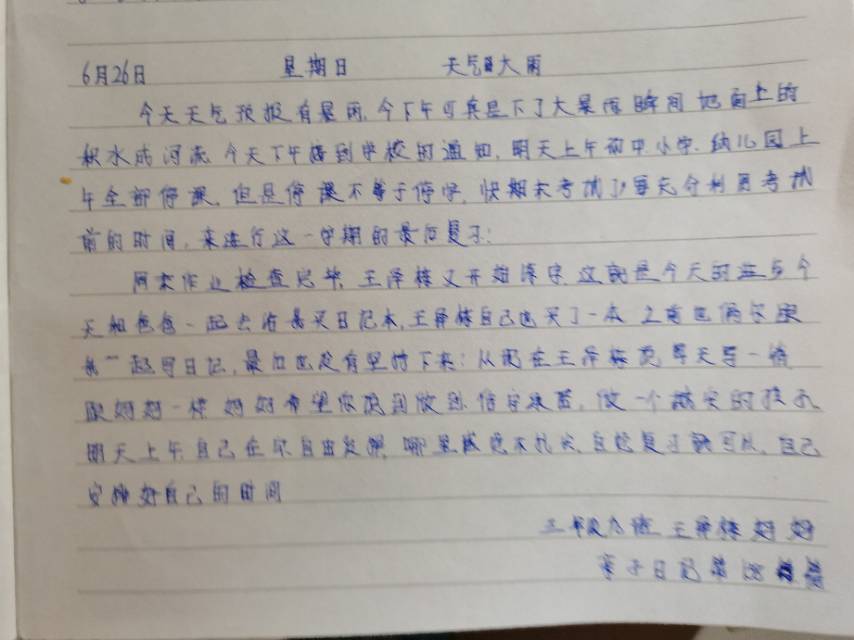 6月26日 星期日 天气 大雨
今天天气预报有暴雨,今下午可真是下了大暴雨 瞬间 地面上的
积水成河流 今天下午接到学校的通知,明天上午初中.小学.幼儿园上
午全部停课,但是停课不等于停学,快期末考试了,要充分利用考试
前的时间,来进行这一学期的最后复习;
周末作业检查完毕,王泽栋又开始练字 这就是今天的 今
天和爸爸一起去 买日记本,王泽栋自己也买了一本 之前也 跟
我一起写日记,最后也没有坚持下来;从现在王泽栋说每天写一篇
跟妈妈一样 妈妈希望你说到做到 信守承诺,做一个诚实的孩子
明天上午自己在家自由发挥,哪里感觉不扎实,自己复习就可以,自己
安排好自己的时间
三年级九班 王泽栋妈妈
亲子日记第